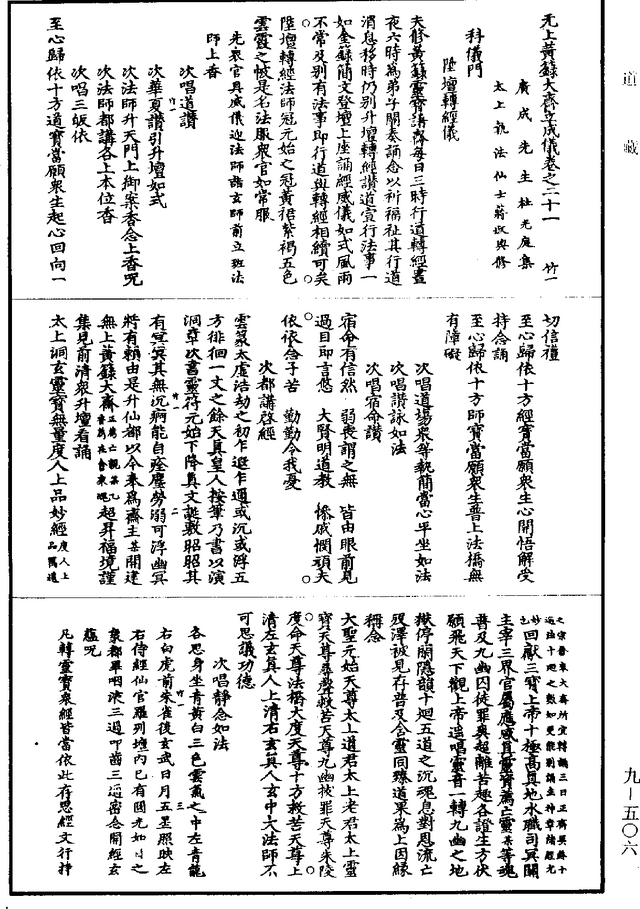 道藏
无上黃籙大齋立成儀卷之二十一 竹一
廣成先生杜光庭集
太上執法仙士蔣叔輿修
科儀門
陞壇轉經儀
夫修黃籙靈寶講齋每日三時行道轉經晝
夜六時為弟子關奏誦念以祈福祉其行道
消息移時仍別升壇轉經讚道宣行法事一
如金籙簡文登壇上座誦經威儀如式風雨
不常及別有法事即行道與轉經相續可矣
陞壇轉經法師冠元始之冠黃裙紫褐五色
雲霞之帔是名法服衆官如常服
先衆官具威儀迎法師詣玄師前立班法
師上香
次唱道讚
次華夏讚引升壇如式
次法師升天門上御案香念上香呪
次法師都講各上本位香
次唱三皈依
至心歸依十方道寶當願衆生起心回向一
切信禮
至心歸依十方經寶當願衆生心開悟解受
持念誦
至心歸依十方師寶當願衆生普上法橋無
有障礙
次唱道場衆等執簡當心平坐如法
次唱讚詠如法
次唱宿命讚
宿命有信然 弱喪謂之無 皆由眼前見
過目即言悠 大賢明道教 慘戚憫頑夫
依依念子苦 勤勤令我憂
次都講啓經
雲篆太虛浩劫之初乍遐乍邇或沉或浮五
方徘徊一丈之餘天真皇人按筆乃書以演
洞章次書靈符元始下降真文誕敷昭昭其
有冥冥其無沉痾能自痊塵勞弱可浮幽冥
將有賴由是升仙都以今奉為齋主某開建
無上黃籙大齋超昇福境謹
集見前清衆升壇看誦
太上洞玄靈寶無量度人上品妙經
回獻三寶上帝十極高真地水職司冥關
主宰三界官屬應感真靈資薦亡靈某等魂
普及九幽囚徒罪輿超離苦趣各證生方伏
願飛天下觀上帝遙唱靈音一轉九幽之地
獄停關隱韻十迴五道之沉魂息對恩流亡
歿澤被見存普及含靈同臻道果為上因緣
稱念
大聖元始天尊太上道君太上老君太上靈
寶天尊尋聲救苦天尊九幽拔罪天尊朱陵
度命天尊法橋大度天尊十方救苦天尊上
清左玄真人上清右玄真人玄中大法師不
可思議功德
次唱靜念如法
各思身坐青黃白三色雲氣之中左青龍
右白虎前朱雀後玄武日月五星照映左
右侍經仙官羅列壇內已有圓光如日之
象都畢咽液三過叩齒三通密念開經玄
蘊呪
凡轉靈寶衆經皆當依此存思經文行持
九－五〇六